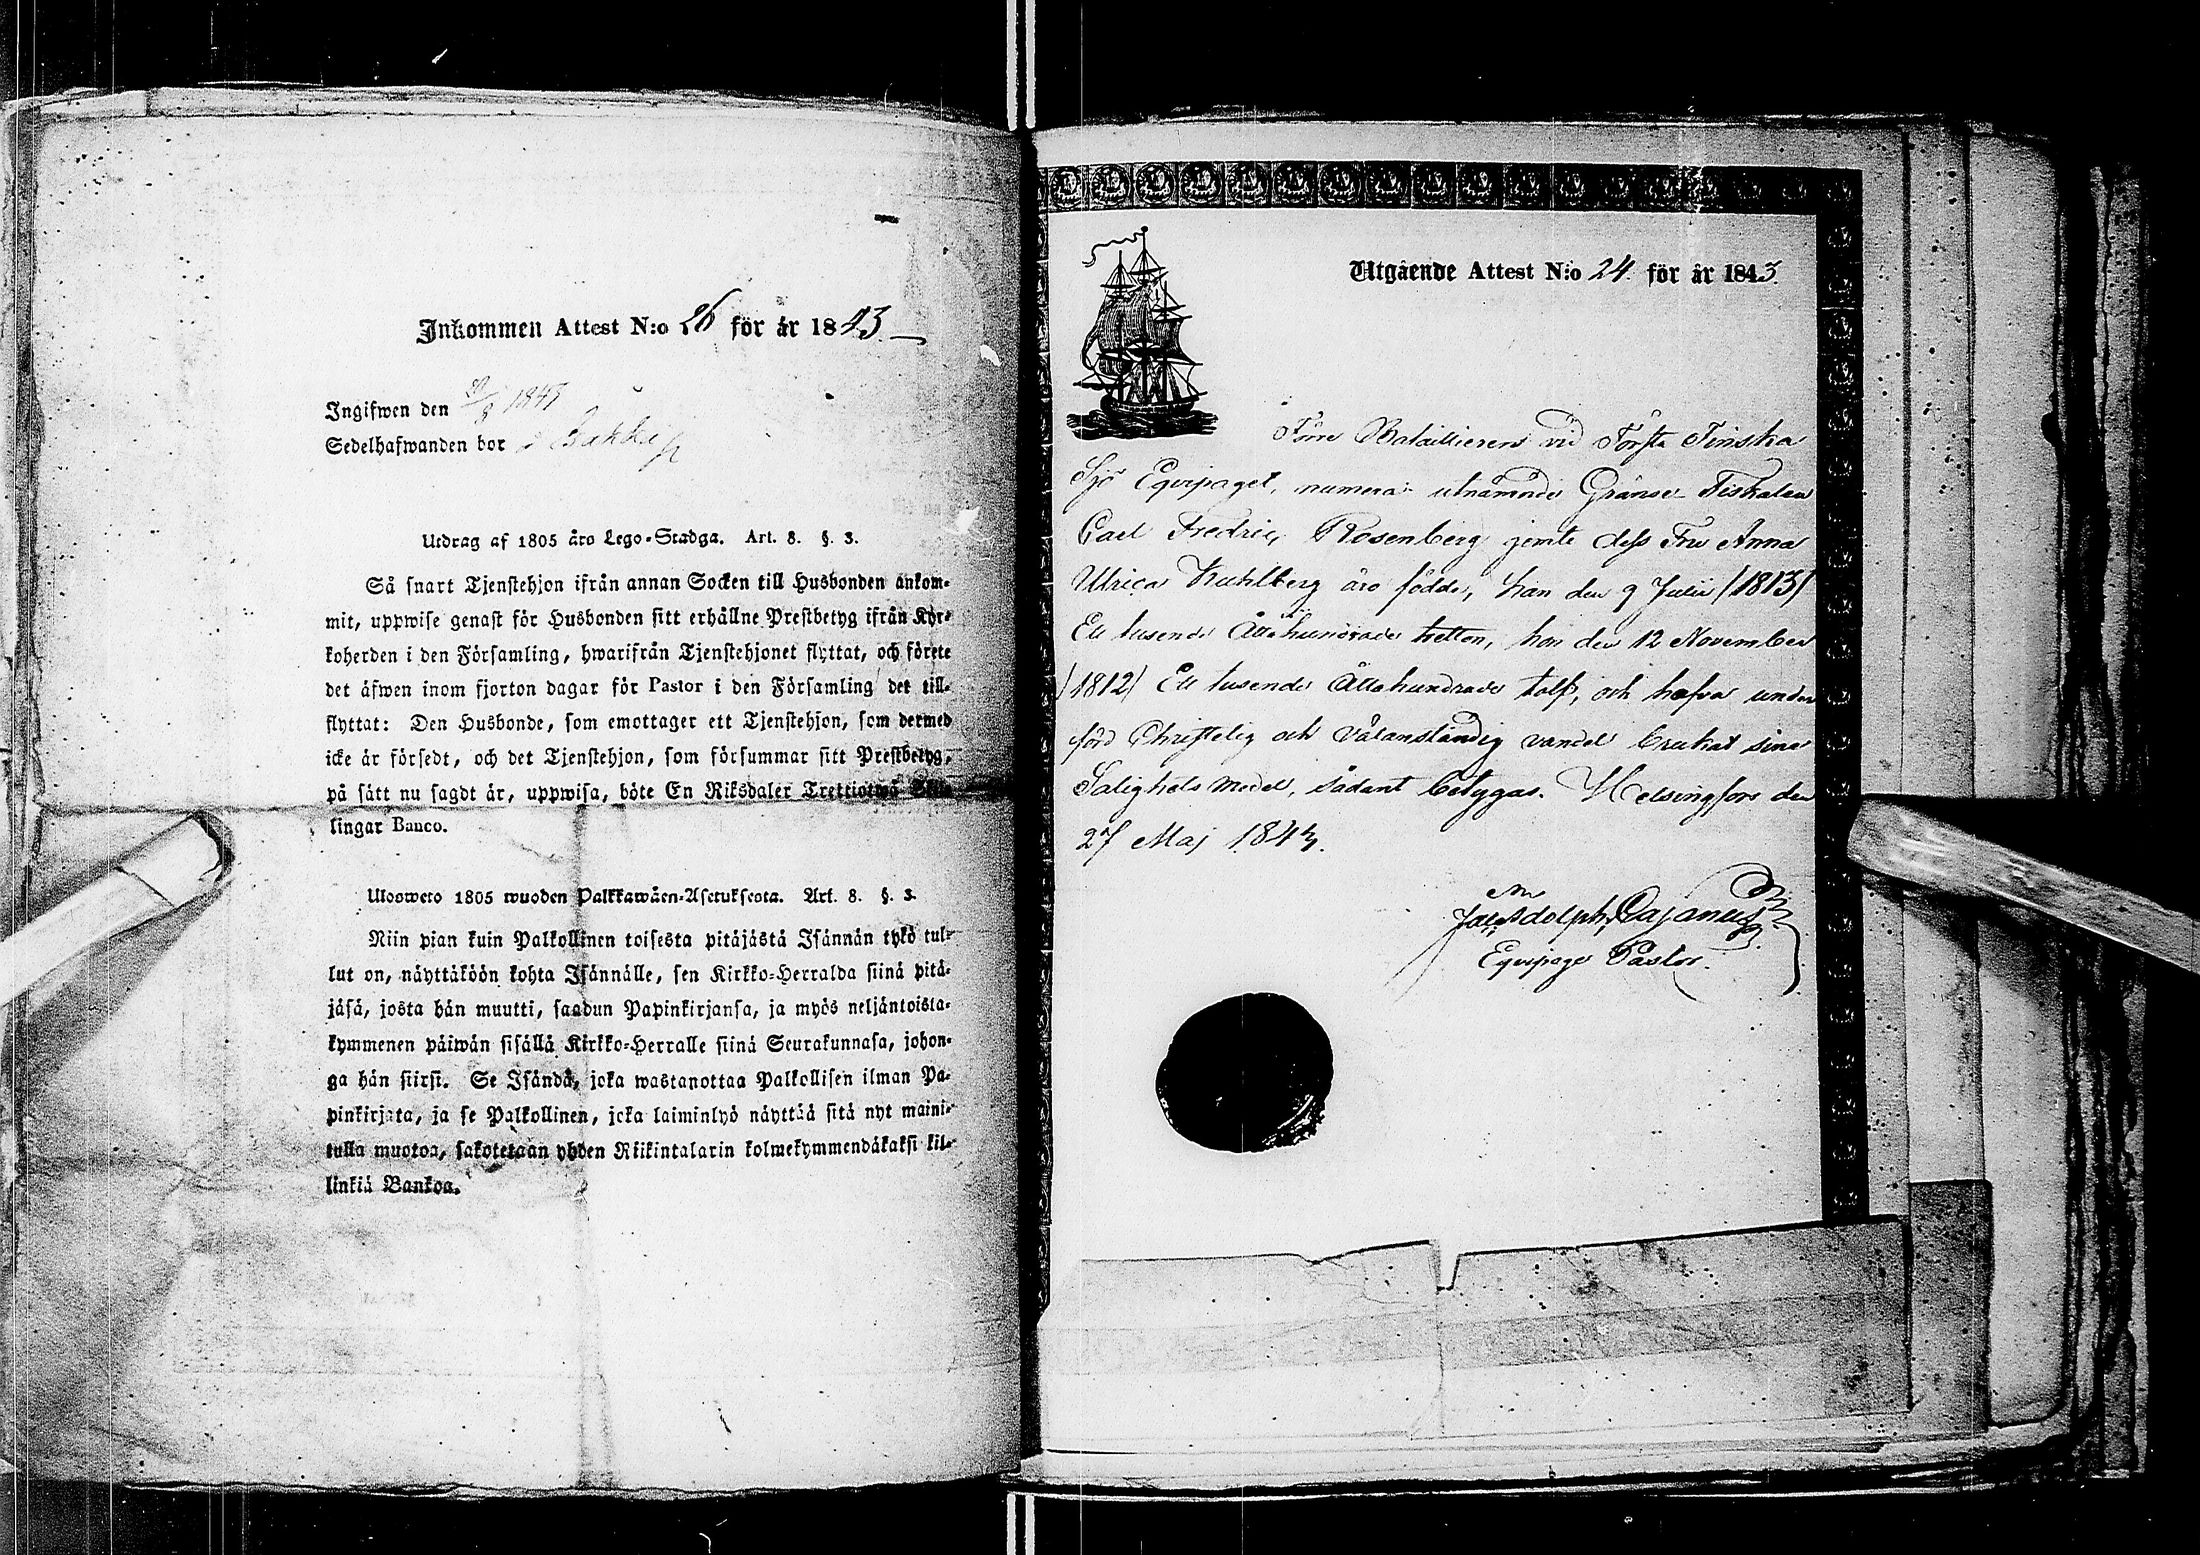 Inkommen Attest N:o 26 för år 1843.
Ingifwen den 30/8 1843
Sedelhafwanden bor i
Utdrag af 1805 års Lego-Stadga. Art. 8. §. 3.
Så snart Tjenstehjon ifrån annan Socken till Husbonden ankom-
mit, uppwise genast för Husbonden sitt erhållne Prestbetyg ifrån Kyr-
koherden i den Församling, hwarifrån Tjenstehjonet flyttat, och förete
det äfwen inom fjorton dagar för Pastor i den Församling det till-
flyttat: Den Husbonde, som emottager ett Tjenstehjon, som dermed
icke är försedt, och det Tjenstehjon, som försummar sitt Prestbetyg,
på sätt nu sagdt är, uppwisa, böte En Riksdaler Trettiotwå Skil-
lingar Banco.
Ulosweto 1805 wuoden Palkkawäen-Asetuksesta. Art. 8. §. 3.
Niin pian kuin Palkollinen toisesta pitäjästä Isännän tykö tul-
lut on, näyttäköön kohta Isännälle, sen Kirkko-Herralda siinä pitä-
jäsä, josta hän muutti, saadun Papinkirjansa, ja myös neljäntoista-
kymmenen päiwän sisällä Kirkko-Herralle siinä Seurakunnasa, johon-
ga hän siirsi. Se Isändä, joka wastanottaa Palkollisen ilman Pa-
pinkirjata, ja se Palkollinen, joka laiminlyö näyttää sitä nyt maini-
tulla muotoa, sakotetaan yhden Riikintalarin kolmekymmendäkaksi kil-
linkiä Bankoa.
Utgående Attest N:o 24 för år 1843.
Förre Bataillieren vid Första Finska
Sjö Equipaget, numera utnämnde Gränse-Fiskalen
Carl Fredric Rosenberg jemte dess Fru Anna
Ulrica Kuhlberg äro födde, han den 9 Julii /1813/
Ett tusende Åttahundrade tretton, hon den 12 November
/1812/ Ett tusende Åttahundrade tolf, och hafva under
förd Christelig och välanständig vandel brukat sine
Salighets medel, sådant betygas. Helsingfors den
27 Maj 1843.
Adolph Cajanus
Equipage Pastor.